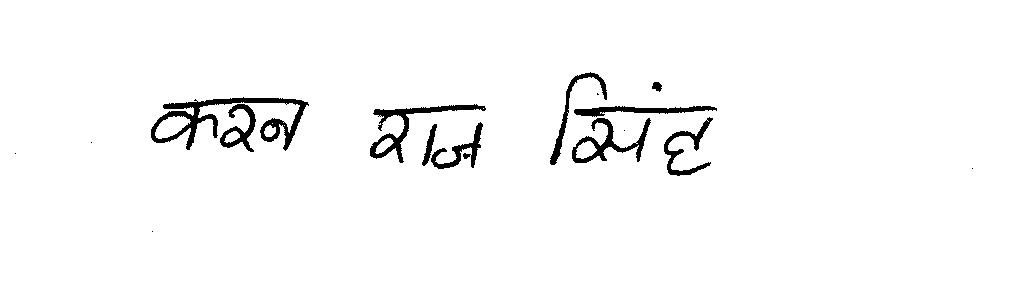 करन राज सिंह